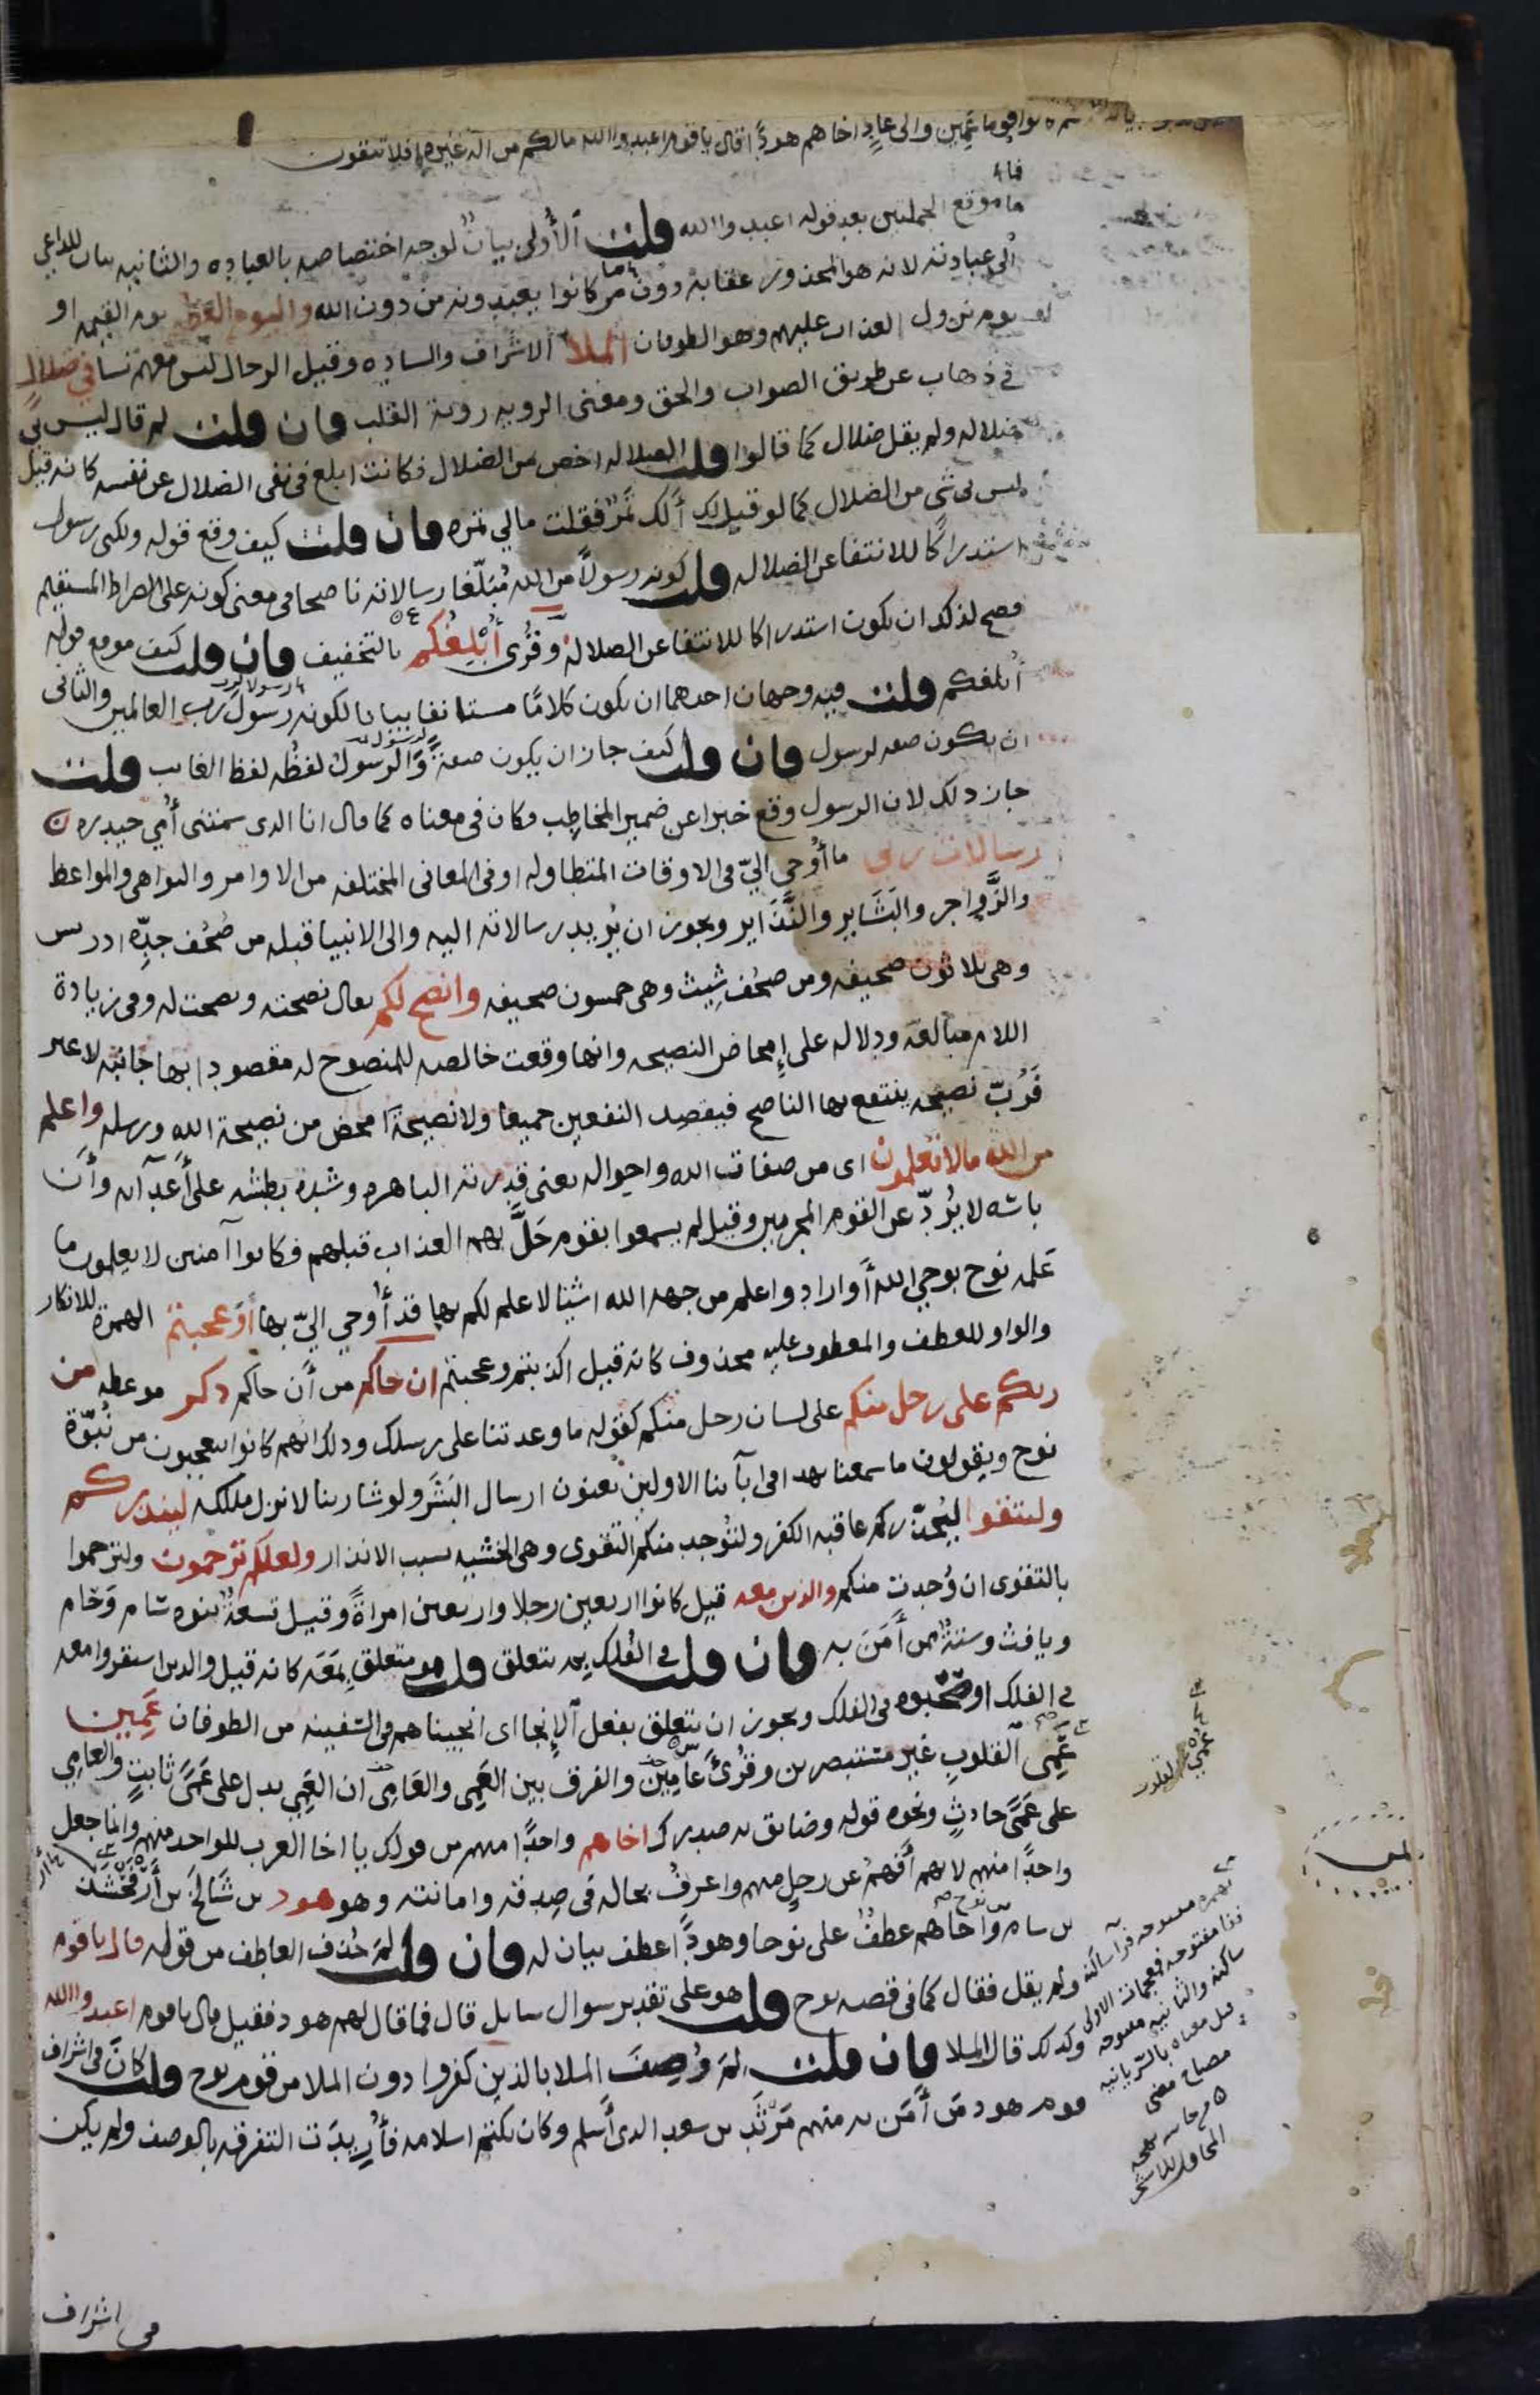 كانوا قوما عمين والى عاد اخاهم هودا قال يا قوم اعبدوا الله مالكم من اله غيره افلا تتقون
فما
ما موقع الجملتين بعد قوله اعبدوا الله قلت الأولى بيان لوجه اختصاصه بالعباده والثانيه بيان للداعي
الى عبادته لانه هو المحذور عقابه دون ما كانوا يعبدونه من دون الله واليوم العظيم يوم القيمه او
يوم نزول العذاب عليهم وهو الطوفان الملأ الاشراف والساده وقيل الرجال ليس معهم نسا في ضلال
في ذهاب عن طريق الصواب والحق ومعنى الرويه روية القلب فان قلت لم قال ليس بي
ضلاله ولم يقل ضلال كما قالوا قلت الضلاله اخص من الضلال فكانت ابلغ في نفى الضلال عن نفسه كانه قيل
ليس بى شى من الضلال كما لو قيل لك ألك تمر فقلت مالي تمره فان قلت كيف وقع قوله ولكنى رسول
استدراكا للانتفا عن الضلاله قلت كونه رسولا من الله مبلغا رسالاته ناصحا في معنى كونه على الصراط المستقيم
فصح لذلك ان يكون استدراكا للانتفا عن الضلاله وقرى أبلغكم بالتخفيف فان قلت كيف موقع قوله
أبلغكم قلت فيه وجهان احدهما ان يكون كلاما مستانفا بيانا لكونه رسول رب العالمين والثانى
ان يكون صفه لرسول فان قلت كيف جاز ان يكون صفة والرسول لفظه لفظ الغايب قلت
جاز ذلك لان الرسول وقع خبرا عن ضمير المخاطب فكان فى معناه كما قال انا الذى سمتنى أمي حيدره
رسالات ربي ما أوحي اليّ فى الاوقات المتطاوله او فى المعانى المختلفه من الاوامر والنواهى والمواعظ
والزواجر والبشاير والنذاير ويجوز ان يريد رسالاته اليه والى الانبيا قبله من صحف جده ادريس
وهى ثلاثون صحيفه ومن صحف شيث وهى خمسون صحيفه وانصح لكم يقال نصحته ونصحت له وفى زيادة
اللام مبالغه ودلاله على إمحاض النصيحه وانها وقعت خالصه للمنصوح له مقصودا بها جانبه لا غير
فرب نصيحه ينتفع بها الناصح فيقصد النفعين جميعا ولا نصيحة امحض من نصيحة الله ورسله واعلم
من الله مالا تعلمون اى من صفات الله واحواله يعنى قدرته الباهره وشدة بطشه على أعدآئه وأن
باسه لا يرد عن القوم المجرمين وقيل لم يسمعوا بقوم حل بهم العذاب قبلهم فكانوا آمنين لا يعلمون ما
علمه نوح بوحي الله أو اراد واعلم من جهه الله اشيا لا علم لكم بها قد أوحي اليّ بها أوعجبتم الهمزه للانكار
والواو للعطف والمعطوف عليه محذوف كانه قيل اكذبتم وعجبتم ان جاكم من أن جاكم ذكر موعظه من
ربكم على رجل منكم على لسان رجل منكم كقوله ما وعدتنا على رسلك وذلك انهم كانوا يتعجبون من نبوة
نوح ويقولون ما سمعنا بهذا في آبآئنا الاولين يعنون ارسال البشر ولو شا ربنا لانزل ملئكه لينذركم
ولتتقوا ليحذركم عاقبه الكفر ولتوجد منكم التقوى وهى الخشيه بسبب الانذار ولعلكم ترحمون ولترحموا
بالتقوى ان وجدت منكم والذين معه قيل كانوا اربعين رجلا واربعين امراة وقيل تسعة بنوه سام وحام
ويافث وستة ممن أمن به فان قلت في الفلك بم يتعلق قلت هو متعلق بمعه كانه قيل والذين استقروا معه
في الفلك او صحبوه فى الفلك ويجوز ان يتعلق بفعل الإنجا اى انجيناهم فى السفينه من الطوفان عمين
عمي القلوب غير مستبصرين وقرئ عامين والفرق بين العمى والعامى ان العمى يدل على عمى ثابت والعامى
على عمى حادث ونحوه قوله وضايق به صدرك اخاهم واحدا منهم من قولك يا اخا العرب للواحد منهم وانما جعل
واحدا منهم لانهم أفهم عن رجل منهم واعرف بحاله فى صدقه وامانته وهو هود بن شالخ بن أرفخشذ
بن سام بن نوح واخاهم عطف على نوحا وهودا عطف بيان له فان قلت لم حذف العاطف من قوله قال يا قوم
ولم يقل فقال كما فى قصه نوح قلت هو على تقدير سوال سايل قال فما قال لهم هود فقيل قال يا قوم اعبدوا الله
وكذلك قال الملا فان قلت لم وصف الملا بالذين كفروا دون الملا من قوم نوح قلت كان فى اشراف
قوم هود من أمن به منهم مرثد بن سعد الذى أسلم وكان يكتم اسلامه فأريدت التفرقه بالوصف ولم يكن
فى اشراف